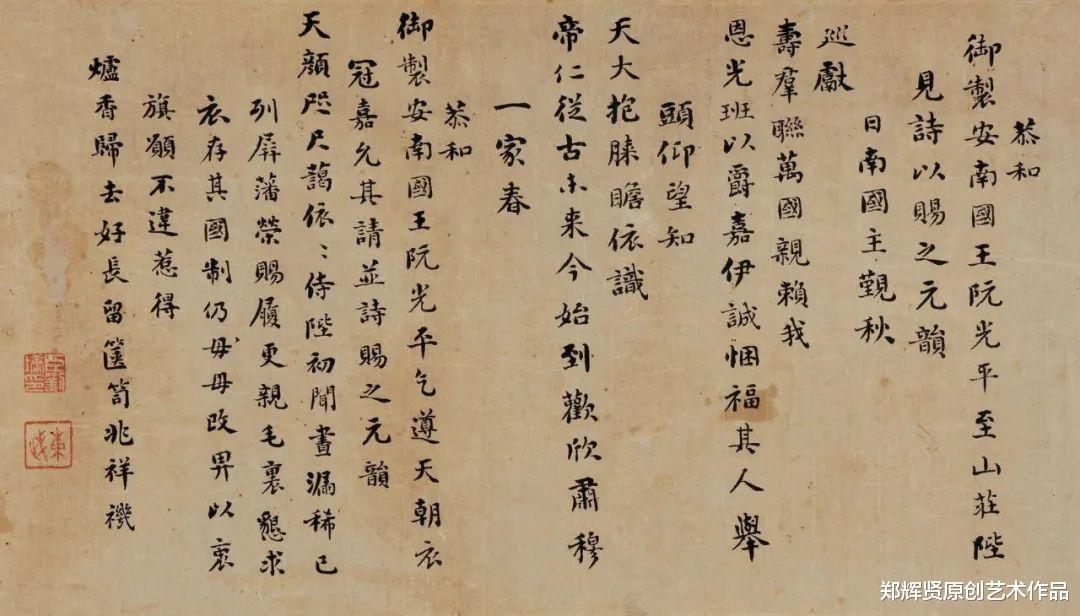 恭和
御製安南國王阮光平至山莊陛
見詩以賜之元韻
日南國主覲秋
巡獻
壽羣聯萬國親賴我
恩光班以爵嘉伊誠悃福其人舉
頭仰望知
天大抱膝瞻依識
帝仁從古未来今始到歡欣肅穆
一家春
恭和
御製安南國王阮光平乞遵天朝衣
冠嘉允其請並詩賜之元韻
天顔咫尺藹依〻侍陛初聞晝漏稀已
列屏藩榮賜履更親毛裏懇求
衣存其國制仍毋毋改畀以衷
旗願不違惹得
爐香歸去好長留篋笥兆祥禨
郑辉贤原创艺术作品